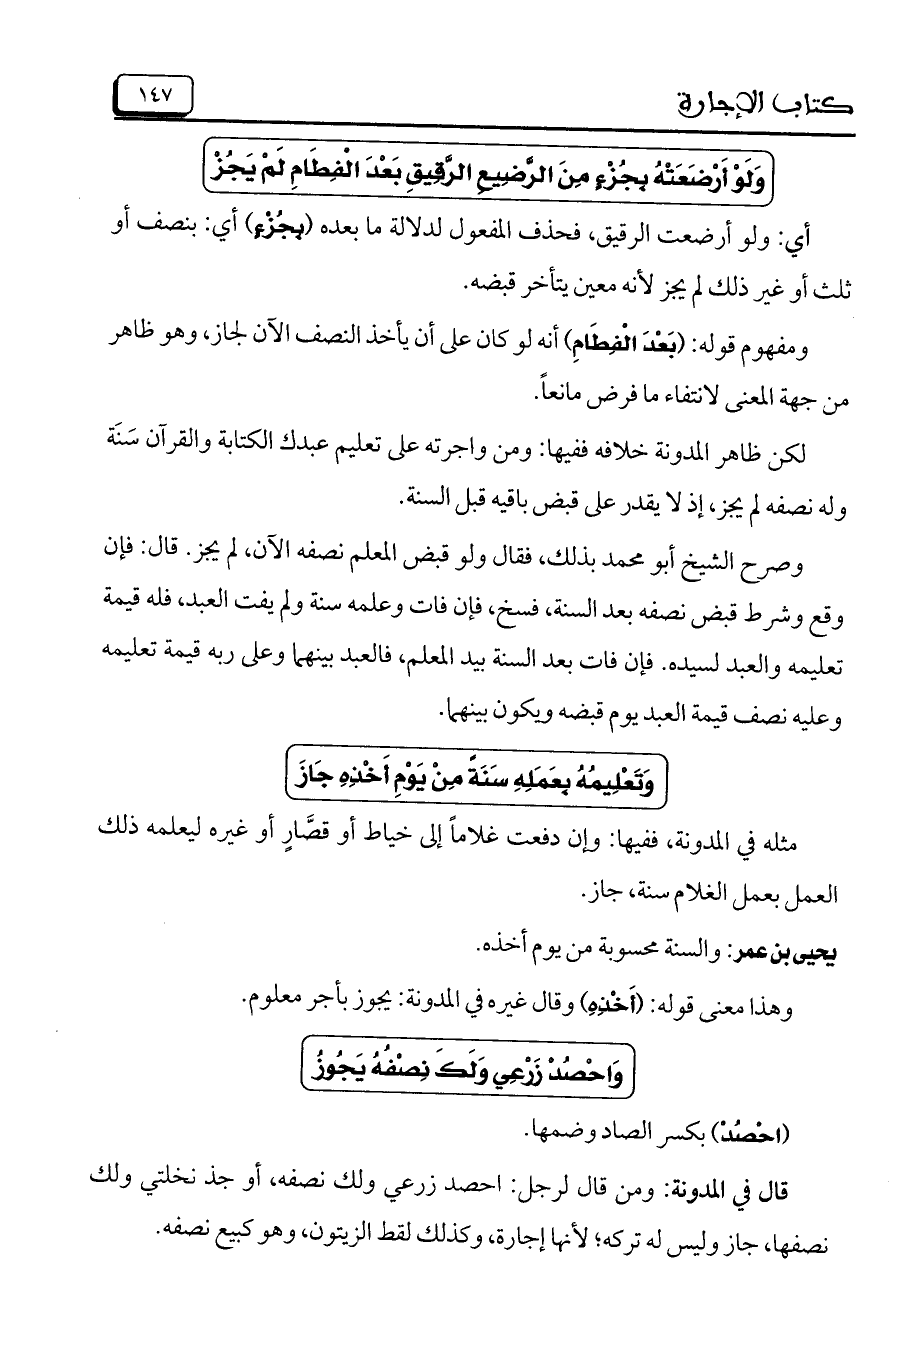 كتاب الإجارة
١٤٧
وَلَوْ أَرْضَعَتْهُ بِجُزْءٍ مِنَ الرَّضِيعِ الرَّقِيقِ بَعْدَ الْفِطَامِ لَمْ يَجُزْ
أي: ولو أرضعت الرقيق، فحذف المفعول لدلالة ما بعده (بِجُزْءٍ) أي: بنصف أو
ثلث أو غير ذلك لم يجز لأنه معين يتأخر قبضه.
ومفهوم قوله: (بَعْدَ الْفِطَامِ) أنه لو كان على أن يأخذ النصف الآن لجاز، وهو ظاهر
من جهة المعنى لانتفاء ما فرض مانعاً.
لكن ظاهر المدونة خلافه ففيها: ومن واجرته على تعليم عبدك الكتابة والقرآن سَنَة
وله نصفه لم يجز، إذ لا يقدر على قبض باقيه قبل السنة.
وصرح الشيخ أبو محمد بذلك، فقال ولو قبض المعلم نصفه الآن، لم يجز. قال: فإن
وقع وشرط قبض نصفه بعد السنة، فسخ، فإن فات وعلمه سنة ولم يفت العبد، فله قيمة
تعليمه والعبد لسيده. فإن فات بعد السنة بيد المعلم، فالعبد بينهما وعلى ربه قيمة تعليمه
وعليه نصف قيمة العبد يوم قبضه ويكون بينهما.
وَتَعْلِيمُهُ بِعَمَلِهِ سَنَةً مِنْ يَوْمِ أَخْذِهِ جَازَ
مثله في المدونة، ففيها: وإن دفعت غلاماً إلى خياط أو قصَّارٍ أو غيره ليعلمه ذلك
العمل بعمل الغلام سنة، جاز.
يحيى بن عمر: والسنة محسوبة من يوم أخذه.
وهذا معنى قوله: (أَخْذِهِ) وقال غيره في المدونة: يجوز بأجر معلوم.
وَاحْصُدْ زَرْعِي وَلَكَ نِصْفُهُ يَجُوزُ
(احْصُدْ) بكسر الصاد وضمها.
قال في المدونة: ومن قال لرجل: احصد زرعي ولك نصفه، أو جذ نخلتي ولك
نصفها، جاز وليس له تركه؛ لأنها إجارة، وكذلك لقط الزيتون، وهو كبيع نصفه.